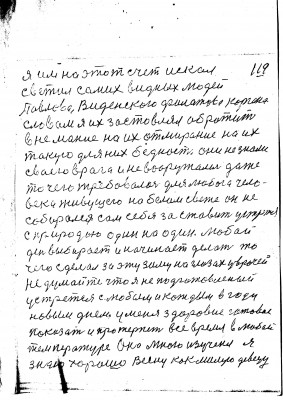 119
я им на этот счет искал
светил самих видных людей
Павлова, Виденского Филатова
словам я их заставлял обратит
внемание на их отмирание на их
такую для них бедность. они незнали
своего врага и невооружали даже
то чего требовалос для любога чело-
века живущего на белом свете он не
собирался сам себя заставит
с природью один на один. любой
ден выбирает и начинает делат то
чего сделал за эту зиму на глазах
не думайте что я не подготовленый
устретея с любым и каждым в году
новым днем уменя здоровие готовое
показат и протерпет все время в любой
температуре Оно много изучена я
знаю хорошо Весну как милую девицу